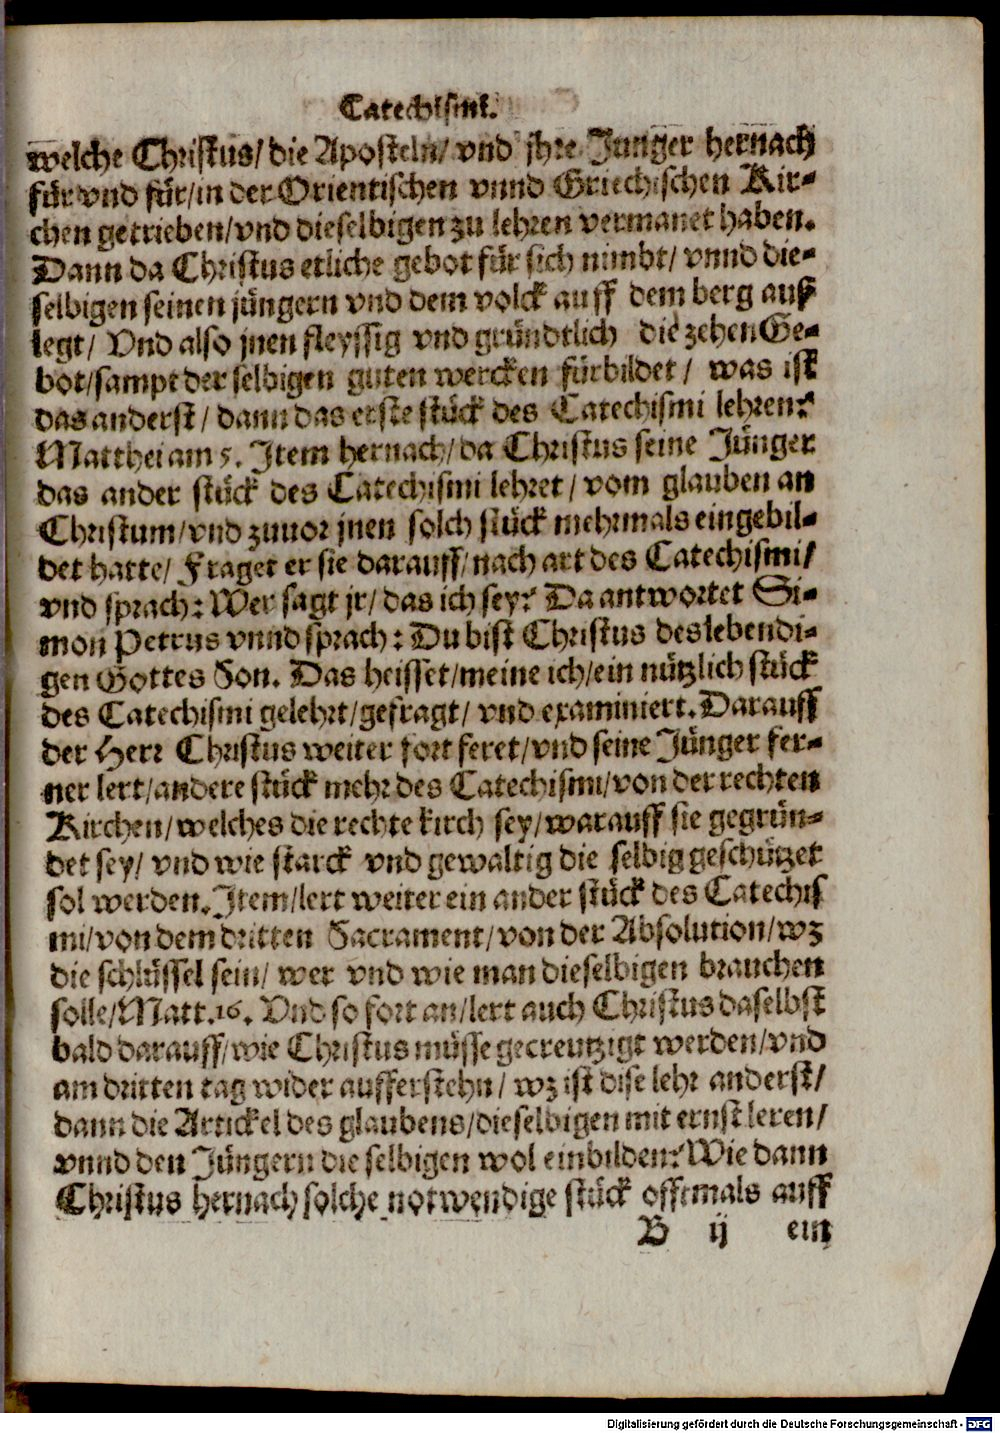 Catechismi.
welche Christus/ die Aposteln/ vnd jhre Junger hernach
für vnd für/ in der Orientischen vnnd Griechischen Kir-
chen getrieben/ vnd dieselbigen zu lehren vermanet haben.
Dann da Christus etliche gebot für sich nimbt/ vnnd die-
selbigen seinen jüngern vnd dem volck auff dem berg auß
legt/ Vnd also jnen fleyssig vnd gründtlich die zehen Ge-
bot/ sampt der selbigen guten wercken fürbildet/ was ist
das anderst/ dann das erste stück des Catechismi lehren?
Matthei am 5. Item hernach/ da Christus seine Jünger
das ander stück des Catechismi lehret/ vom glauben an
Christum/ vnd zuuor jnen solch stück mehrmals eingebil-
det hatte/ Fraget er sie darauff/ nach art des Catechismi/
vnd sprach: Wer sagt jr/ das ich sey? Da antwortet Si-
mon Petrus vnnd sprach: Du bist Christus des lebendi-
gen Gottes Son. Das heisset/ meine ich/ ein nützlich stück
des Catechismi gelehrt/ gefragt/ vnd examiniert. Darauff
der Herr Christus weiter fort feret/ vnd seine Jünger fer-
ner lert/ andere stück mehr des Catechismi/ von der rechten
Kirchen/ welches die rechte kirch sey/ warauff sie gegrün-
det sey/ vnd wie starck vnd gewaltig die selbig geschützet
sol werden. Item/ lert weiter ein ander stück des Catechis
mi/ von dem dritten Sacrament/ von der Absolution/ wz
die schlüssel sein/ wer vnd wie man dieselbigen brauchen
solle/ Matt. 16. Vnd so fort an/ lert auch Christus daselbst
bald darauff/ wie Christus müsse gecreutzigt werden/ vnd
am dritten tag wider aufferstehn/ wz ist dise lehr anderst/
dann die Artickel des glaubens/ dieselbigen mit ernst leren/
vnnd den Jüngern die selbigen wol einbilden? Wie dann
Christus hernach solche notwendige stück offtmals auff
B ij ein
Digitalisierung gefördert durch die Deutsche Forschungsgemeinschaft - DFG